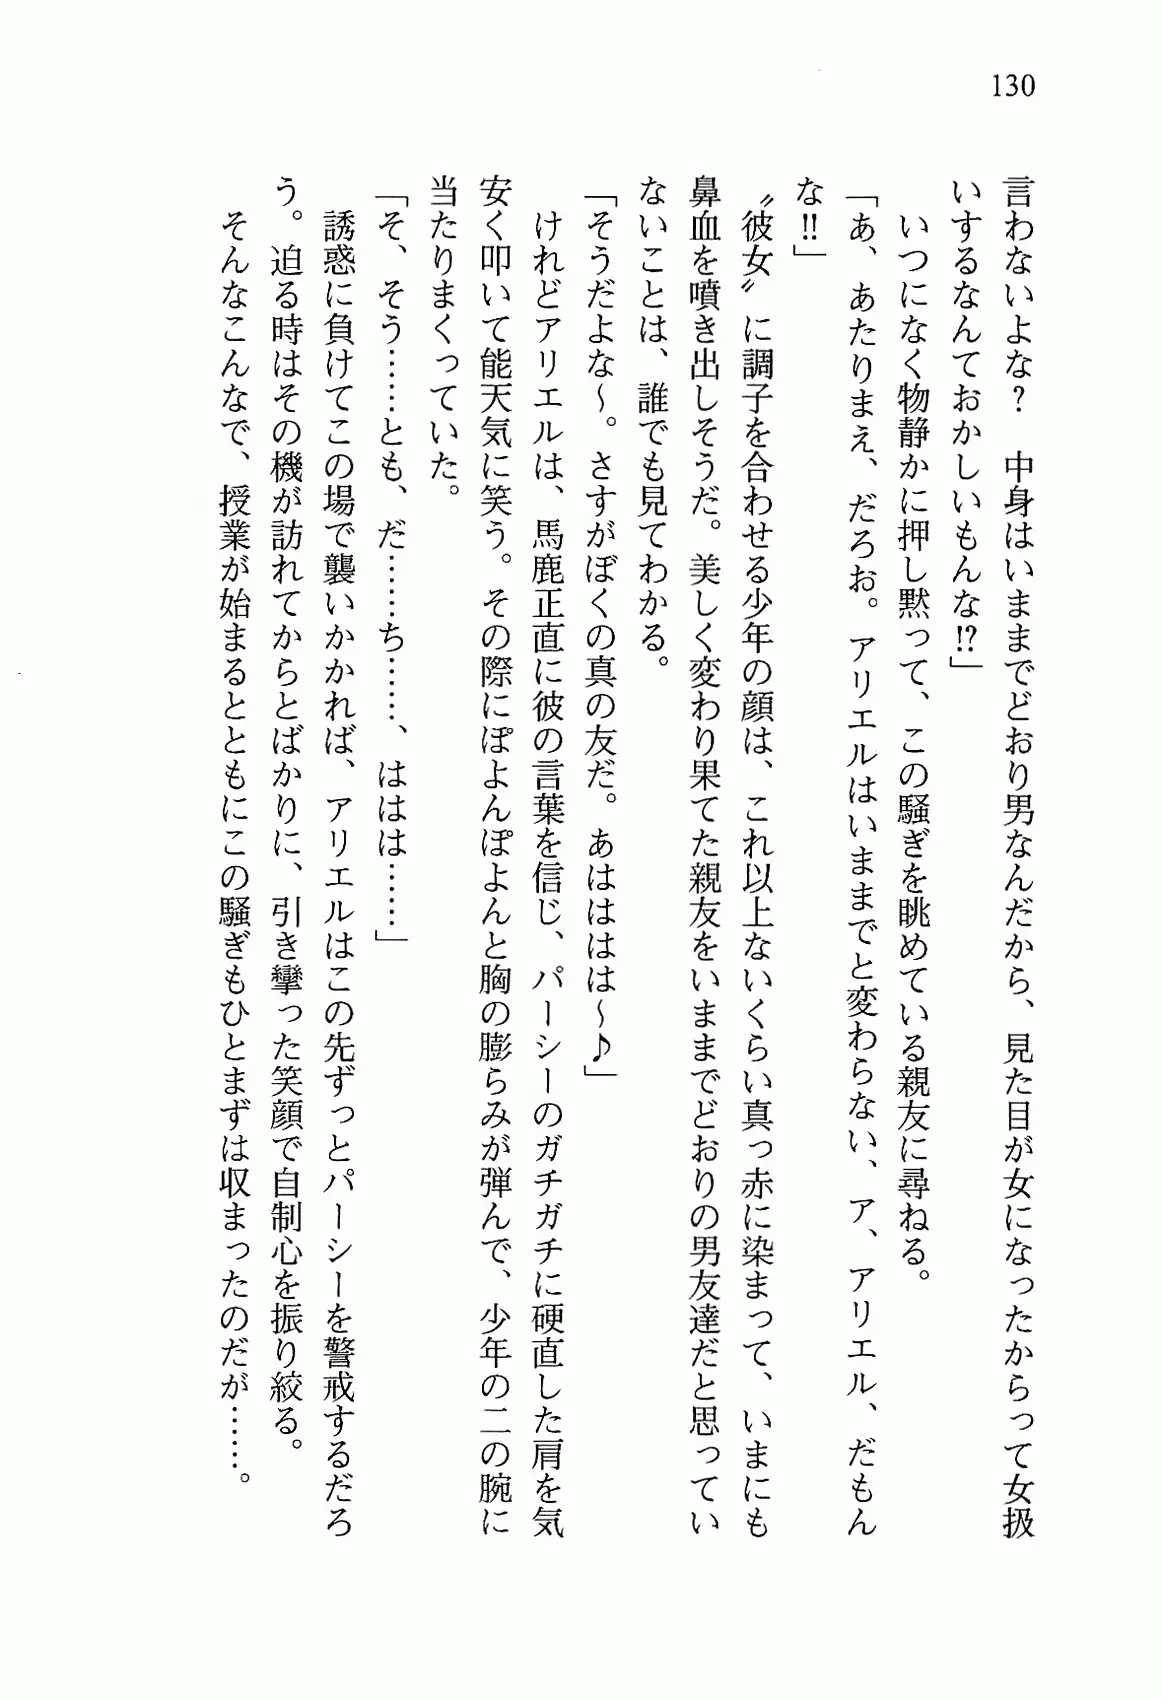 130
言わないよな？　中身はいままでどおり男なんだから、見た目が女になったからって女扱
いするなんておかしいもんな!?」
　いつになく物静かに押し黙って、この騒ぎを眺めている親友に尋ねる。
「あ、あたりまえ、だろお。アリエルはいままでと変わらない、ア、アリエル、だもん
な!!」
〝彼女〟に調子を合わせる少年の顔は、これ以上ないくらい真っ赤に染まって、いまにも
鼻血を噴き出しそうだ。美しく変わり果てた親友をいままでどおりの男友達だと思ってい
ないことは、誰でも見てわかる。
「そうだよな～。さすがぼくの真の友だ。あはははは～♪」
　けれどアリエルは、馬鹿正直に彼の言葉を信じ、パーシーのガチガチに硬直した肩を気
安く叩いて能天気に笑う。その際にぽよんぽよんと胸の膨らみが弾んで、少年の二の腕に
当たりまくっていた。
「そ、そう……とも、だ……ち……、ははは……」
　誘惑に負けてこの場で襲いかかれば、アリエルはこの先ずっとパーシーを警戒するだろ
う。迫る時はその機が訪れてからとばかりに、引き攣った笑顔で自制心を振り絞る。
　そんなこんなで、授業が始まるとともにこの騒ぎもひとまずは収まったのだが……。